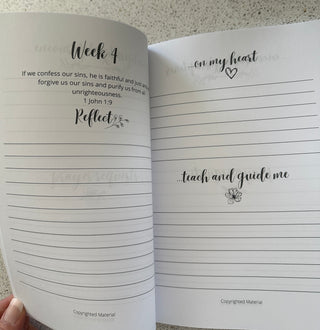 Week 4
If we confess our sins, he is faithful and just and
forgive us our sins and purify us from all
unrighteousness.
1 John 1:9
Reflect
Copyrighted Material
...on my heart
...teach and guide me
Copyrighted Material